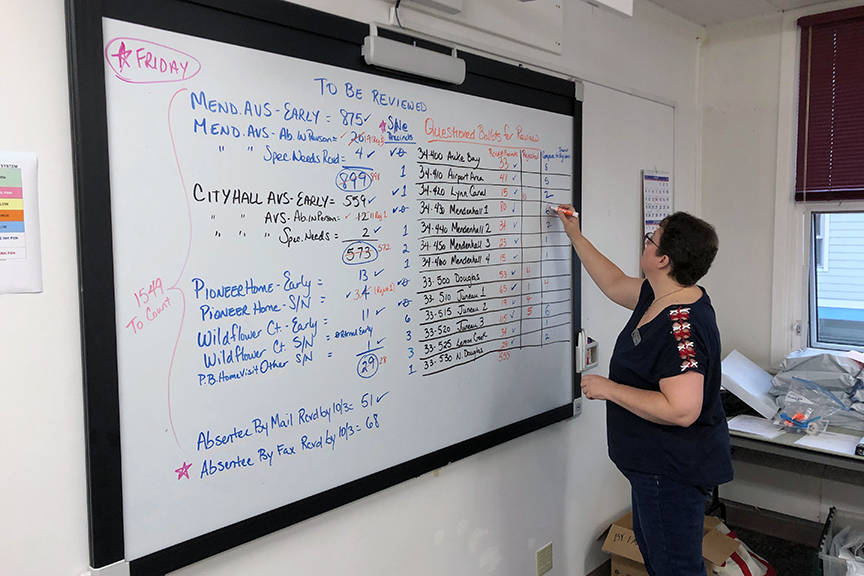 ☆ FRIDAY
TO BE REVIEWED
MEND. AVS - EARLY = 875 ✓
MEND. AVS - Ab. InPerson =
" " Spec. Needs Rcvd = 4 ✓
899 898
CITY HALL AVS - EARLY = 559 ✓
" " AVS - Ab. InPerson = 12
" " Spec. Needs = 2 ✓
573 572
Pioneer Home - Early = 13 ✓
Pioneer Home - S/N =
Wildflower Ct. - Early = 11 ✓
Wildflower Ct. S/N =
P.B. Home Visit Other S/N = 1 ✓
29 28
1549
To Count
Absentee By Mail Rcvd by 10/3 = 51 ✓
☆ Absentee By Fax Rcvd by 10/3 = 68
S/N @
Precincts
1
1
2
1
6
3
3
1
Questioned Ballots for Review
Rejected
34-400 Auke Bay 33
34-410 Airport Area 41 ✓ 5
34-420 Lynn Canal 15 ✓ 2
34-430 Mendenhall 1 80 ✓
34-440 Mendenhall 2 34 ✓
34-450 Mendenhall 3 23 ✓ 1
34-460 Mendenhall 4 15 ✓ 1
33-500 Douglas 53 ✓ 4
33-510 Juneau 1 65 ✓
33-515 Juneau 2 19 ✓ 4
33-520 Juneau 3 5 6
33-525 Lemon Creek
33-530 N. Douglas 2